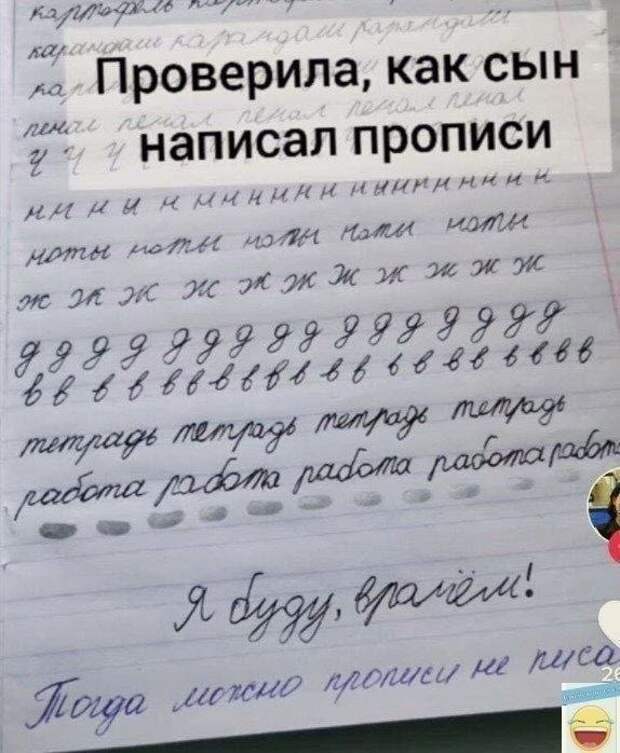 картофель
карандаш карандаш карандаш
Проверила, как сын
написал прописи
пенал пенал пенал пенал пенал
ч ч ч
н н н н н н н н н н н н н н н н
ноты ноты ноты ноты ноты
ж ж ж ж ж ж ж ж ж ж
д д д д д д д д д д д д д д д д
в в в в в в в в в в в в в в в в в в в в
тетрадь тетрадь тетрадь тетрадь
работа работа работа работа работ
Я буду, врачём!
Тогда можно прописи не писа